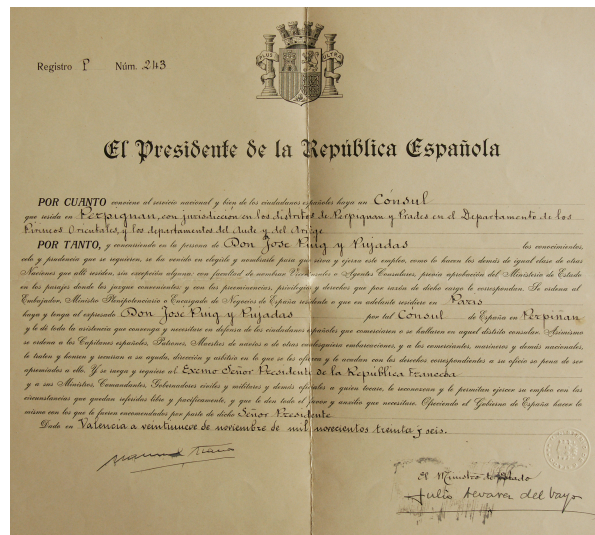 PLUS ULTRA
Registro P Núm. 243
El Presidente de la República Española
POR CUANTO conviene al servicio nacional y bien de los ciudadanos españoles haya un Cónsul
que resida en Perpignan, con jurisdicción en los distritos de Perpignan y Prades en el Departamento de los
Pirineos Orientales, y los departamentos del Aude y del Ariège
POR TANTO, y concurriendo en la persona de Don Jose Puig y Pujadas los conocimientos,
celo y prudencia que se requieren, se ha venido en elegirlo y nombrarlo para que sirva y ejerza este empleo, como lo hacen los demás de igual clase de otras
Naciones que allí residen, sin excepción alguna: con facultad de nombrar Vicecónsules o Agentes Consulares, previa aprobación del Ministerio de Estado
en los parajes donde los juzgue convenientes y con las preeminencias, privilegios y derechos que por razón de dicho cargo le correspondan. Se ordena al
Embajador, Ministro Plenipotenciario o Encargado de Negocios de España residente o que en adelante residiere en Paris
haya y tenga al expresado Don José Puig y Pujadas por tal Consul de España en Perpiñán
y le dé toda la asistencia que convenga y necesitare en defensa de los ciudadanos españoles que comerciaren o se hallaren en aquel distrito consular. Asimismo
se ordena a los Capitanes españoles, Patronos, Maestres de navíos o de otras cualesquiera embarcaciones, y a los comerciantes, marineros y demás nacionales,
le traten y honren y recurran a su ayuda, dirección y arbitrio en lo que se les ofrezca y le acudan con los derechos correspondientes a su oficio so pena de ser
apremiados a ello. Y se ruega y requiere al Excmo Señor Presidente de la República Francesa
y a sus Ministros, Comandantes, Gobernadores civiles y militares y demás oficiales a quien tocare, le reconozcan y le permitan ejercer su empleo con las
circunstancias que quedan referidas libre y pacíficamente, y que le den todo el favor y auxilio que necesitare. Ofreciendo el Gobierno de España hacer lo
mismo con los que le fueren encomendados por parte de dicho Señor Presidente
Dado en Valencia a veintinueve de noviembre de mil novecientos treinta y seis.
El Ministro de Estado
Julio Alvarez del Vayo